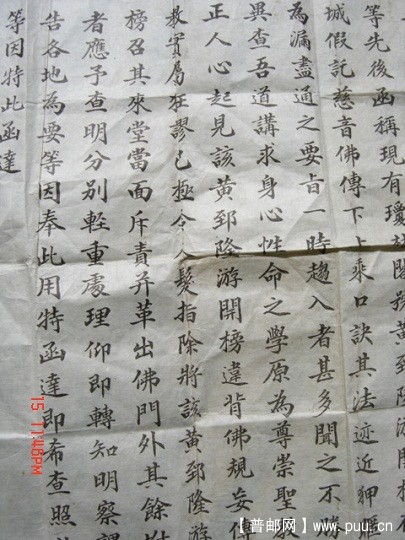 等先後函稱現有瓊黃郅隆游開榜
城假託慈音佛傳下上乘口訣其法迹近狎
為漏盡通之要旨一時趨入者甚多聞之不勝
異查吾道講求身心性命之學原為尊崇聖
正人心起見該黃郅隆游開榜違背佛規妄傳
教實屬狂謬已極令人髮指除將該黃郅隆游
榜召其來堂當面斥責并革出佛門外其餘
者應予查明分別輕重處理仰即轉知明察
告各地為要等因奉此用特函達即希查照
等因特此函達
15 11:45PM
【普邮网】www.puu.cn